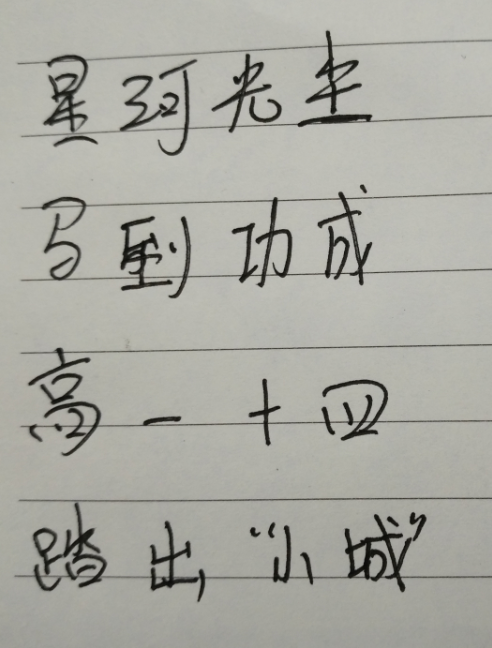 星河光尘
马到功成
高一十四
踏出“小城”